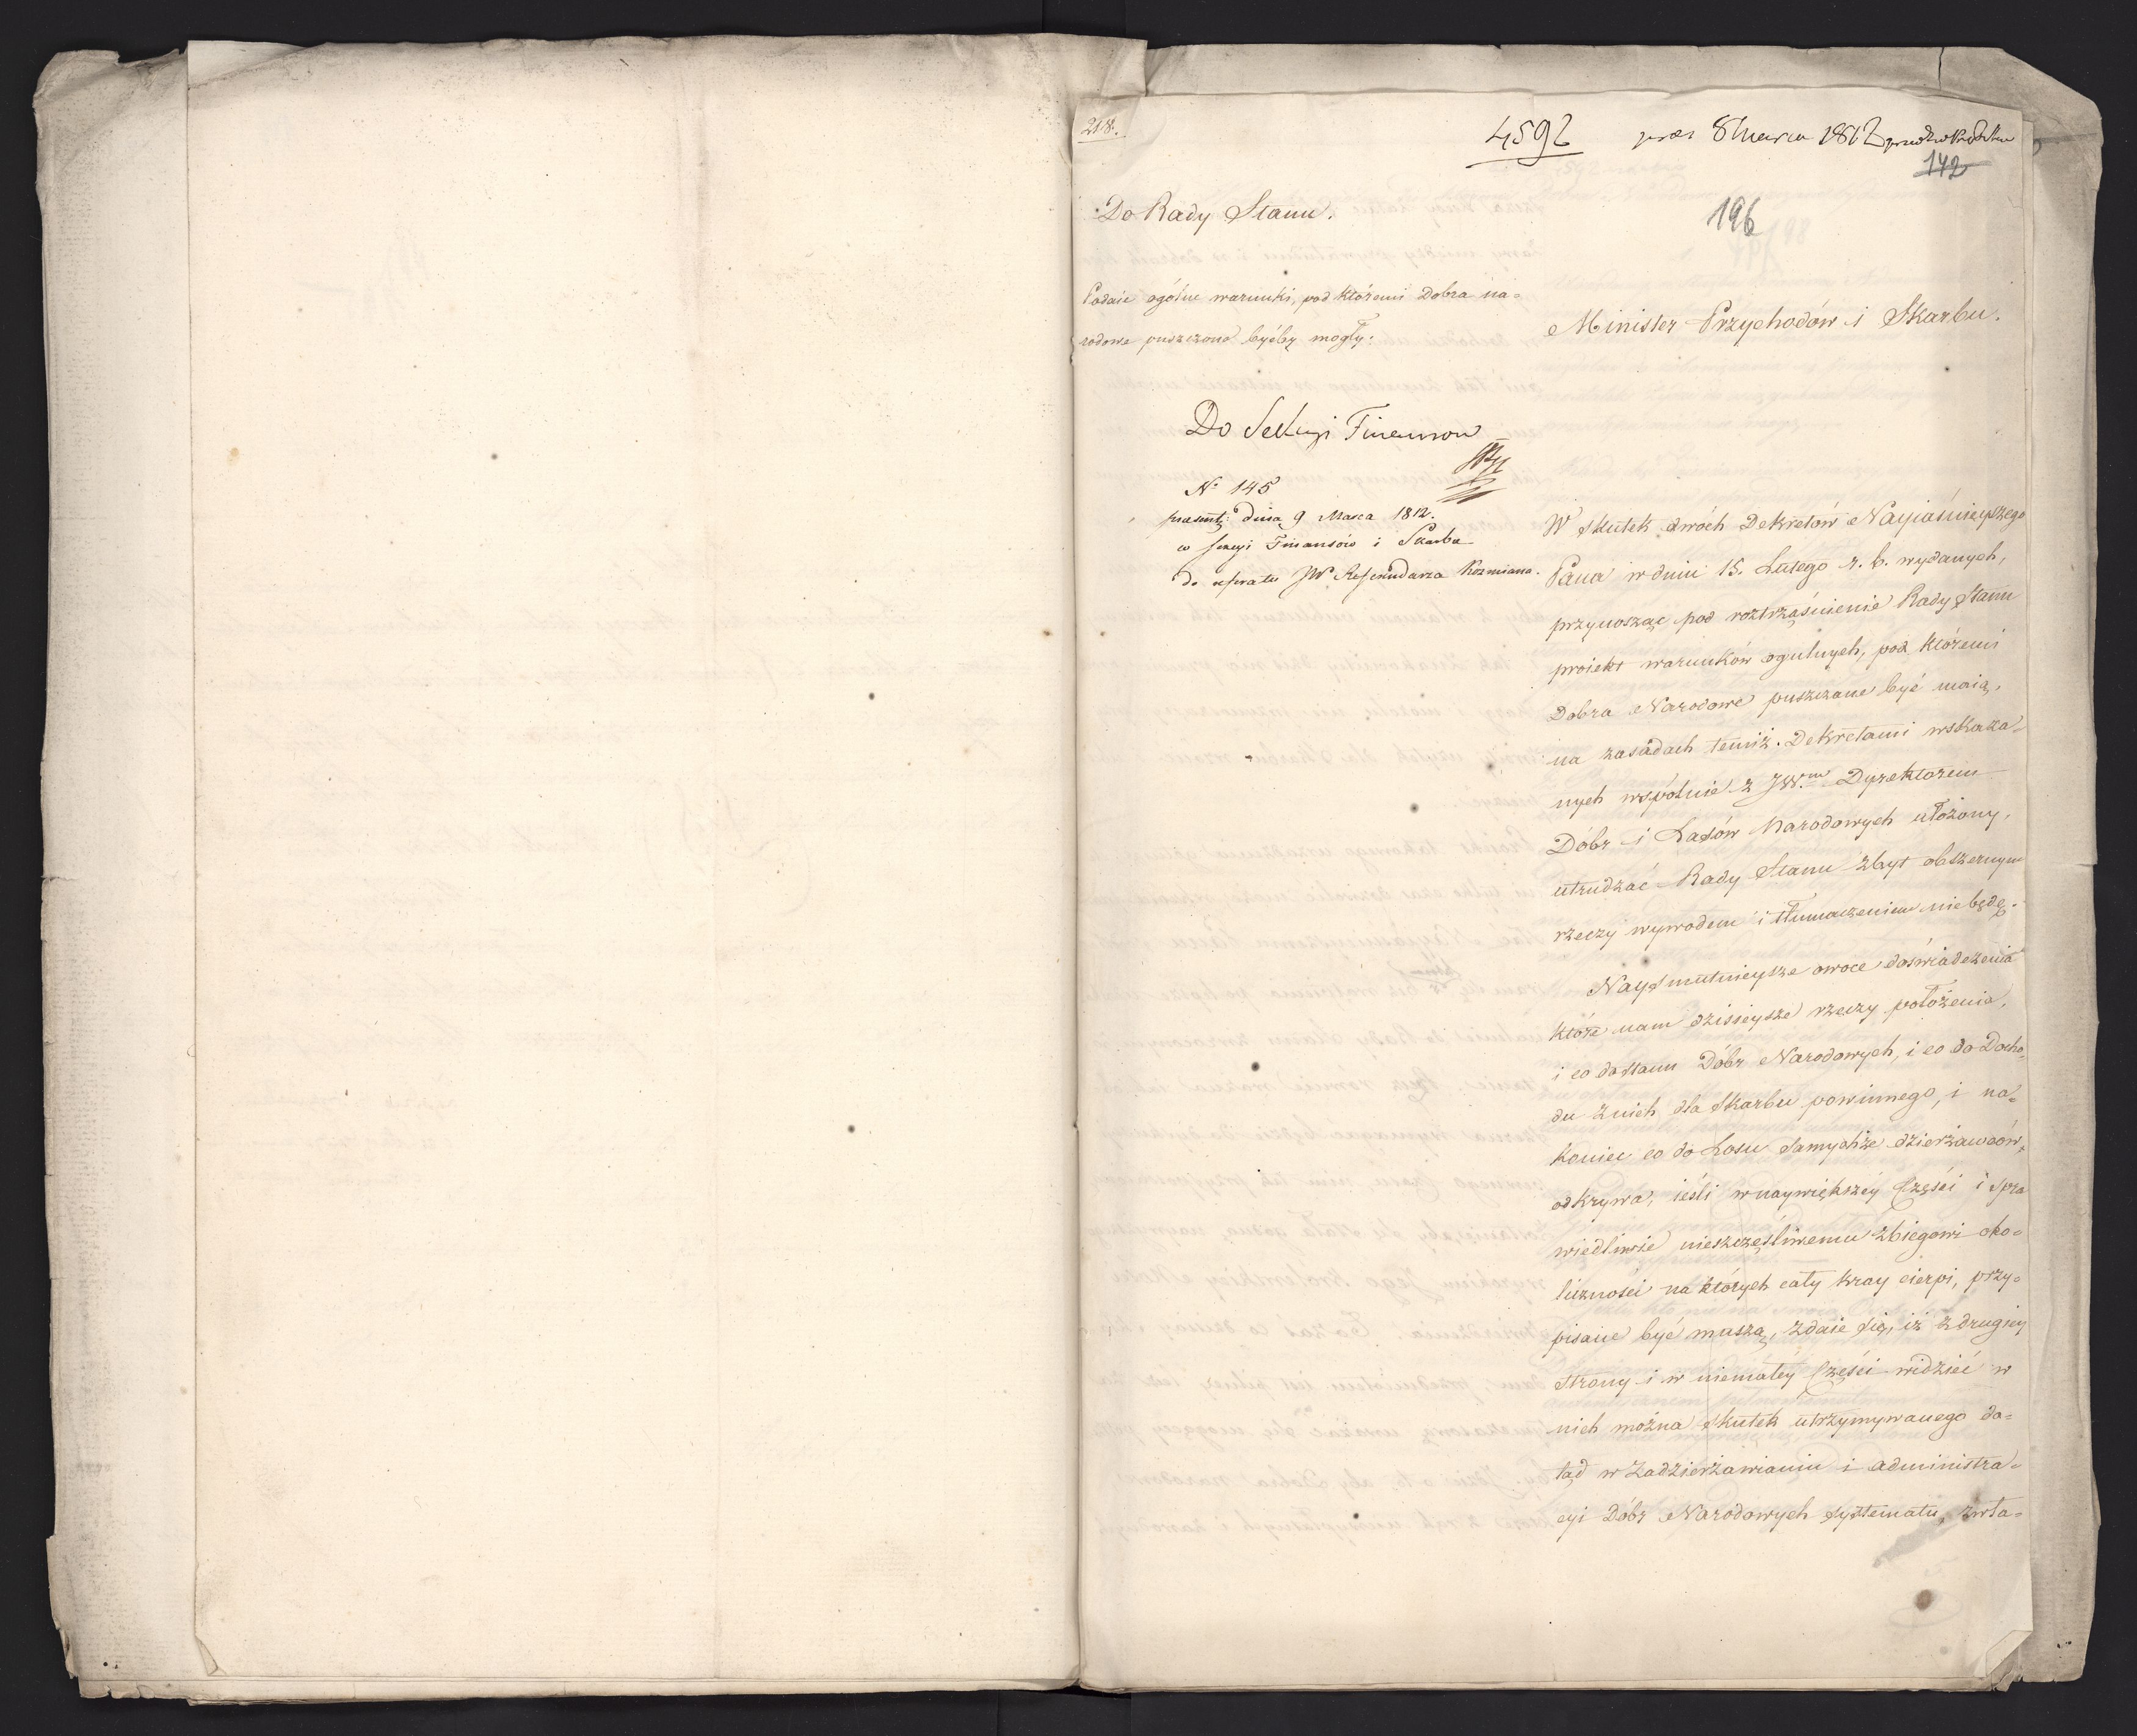 218.
4592 8 Marca 1812
142
196
Do Rady Stanu.
Podaie ogólne warunki, pod któremi Dobra na=
rodowe puszczone bydźby mogły.
Do Sekcyi Finansow
No 145
praesent: dnia 9 Marca 1812.
w Sekcyi Finansów i Skarbu
do referatu JW Referendarza Kozmiana.
Minister Przychodów i Skarbu.
W skutek dwóch Dekretów Nayiaśnieyszego
Pana w dniu 15. Lutego r. b. wydanych,
przynosząc pod roztrząśnienie Rady Stanu
proiekt warunków ogulnych, pod któremi
Dobra Narodowe puszczane być maią,
na zasadach temiż Dekretami wskaza=
nych wspólnie z JW.m Dyrektorem
Dóbr i Lasów Narodowych ułożony,
utrudzać Rady Stanu zbyt obszernym
rzeczy wywodem i tłumaczeniem nie będę.
Naysmutnieysze owoce doświadczenia
które nam dzisieysze rzeczy położenia,
i co do stanu Dóbr Narodowych, i co do Docho=
du z nich dla Skarbu powinnego, i na=
koniec co do Losu samychże dzierżawców,
odkrywa, ieśli w naywiększéy Części i Spra
wiedliwie nieszczęśliwemu zbiegowi oko=
liczności na których cały kray cierpi, przy=
pisane być muszą, zdaie się, iż z drugiey
strony i w niemałéy Części widzieć w
nich można skutek utrzymywanego do=
tąd w Zadzierżawianiu i administra=
cyi Dóbr Narodowych systematu, zwła=